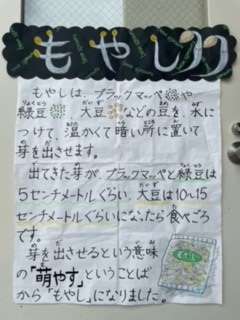 もやし
もやしは、ブラックマッペや
緑豆 大豆などの豆を、水に
つけて、温かくて暗い所に置いて
芽を出させます。
出てきた芽が、ブラックマッペと緑豆は
5センチメートルぐらい、大豆は10〜15
センチメートルぐらいになったら食べごろ
です。
芽を出させるという意味
の「萌やす」ということば
から"もやし"になりました。
もやし